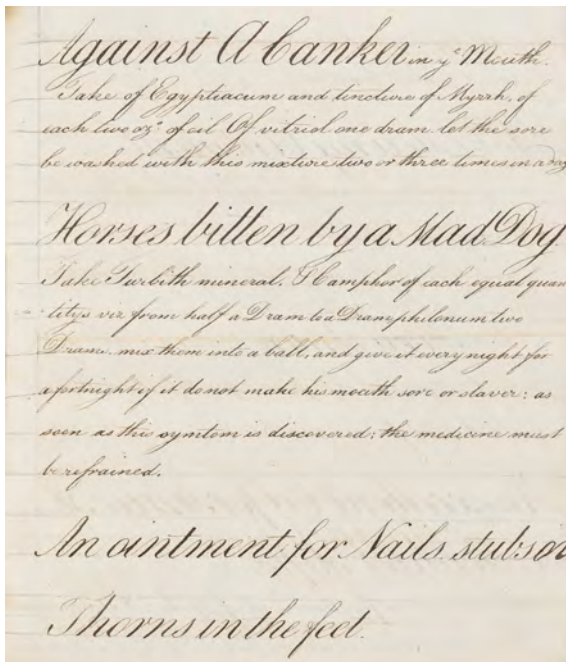 Against A Canker in yᵉ Mouth.
Take of Egyptiacum and tincture of Myrrh, of
each two ozˢ of oil Of vitriol one dram let the sore
be washed with this mixture two or three times in a day
Horses bitten by a Mad Dog
Take Turbith mineral. & Camphor of each equal quan
titys viz from half a Dram to a Dram philonum two
Drams. mix them into a ball, and give it every night for
a fortnight if it do not make his mouth sore or slaver: as
soon as this symtom is discovered; the medicine must
be refrained.
An ointment for Nails. stubs or
Thorns in the feet.